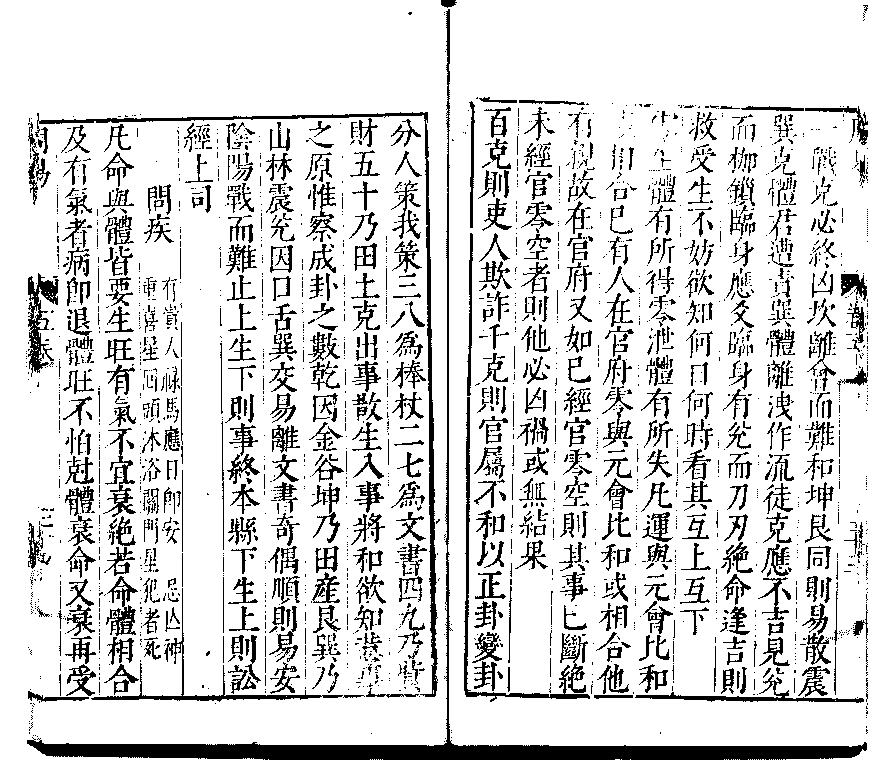 戰克必終凶坎離會而難和坤艮同則易散震
巽克體君遭責巽體離洩作流徒克應不吉見兊
而枷鎖臨身應爻臨身有兊而刀刃絶命逢吉則
救受生不妨欲知何日何時看其互上互下
生體有所得零泄體有所失凡運與元會比和
相合巳有人在官府零與元會比和或相合他
有親故在官府又如巳經官零空則其事巳斷絶
未經官零空者則他必凶禍或無結果
百克則吏人欺詐千克則官屬不和以正卦變卦
分人策我策三八爲棒杖二七爲文書四九乃
財五十乃田土克出事散生入事將和欲知
之原惟察成卦之數乾因金谷坤乃田産艮巽乃
山林震兊因口舌巽交易離文書奇偶順則易安
陰陽戰而難止上生下則事終本縣下生上則訟
經上司
問疾
有貴人祿馬應日卽安 忌凶神
重喜星四頭沐浴關門星犯者死
凡命與體皆要生旺有氣不宜衰絶若命體相合
及有氣者病卽退體旺不怕尅體衰命又衰再受
周易
五